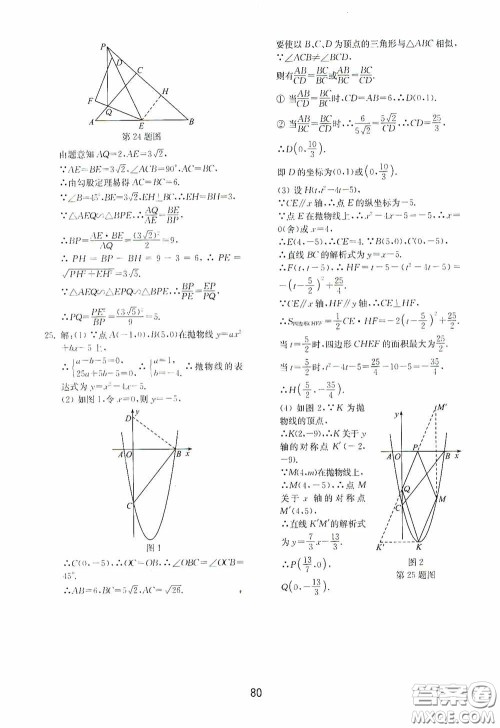 P
D
C
F
H
Q
A
E
B
第24题图
由题意知AQ=2,AE=3√2,
∵AE=BE=3√2,∠ACB=90°,AC=BC,
∴由勾股定理易得AC=BC=6.
∵∠B=45°,BE=3√2,EH⊥BC,∴EH=BH=3.
∵△AEQ∽△BPE,∴AQ/BE=AE/BP
∴BP=AE·BE/AQ=(3√2)²/2=9.
∴PH=BP-BH=9-3=6,∴PE=
√(PH²+EH²)=3√5.
∵△AEQ∽△EPQ∽△BPE,∴BP/PE=PE/PQ.
∴PQ=PE²/BP=(3√5)²/9=5
25. 解:(1)∵点A(-1,0),B(5,0)在抛物线y=ax²
+bx-5上,
∴{a-b-5=0, 25a+5b-5=0,∴{a=1, b=-4.∴抛物线的表
达式为y=x²-4x-5.
(2)如图1,令x=0,则y=-5,
y
D
A
O
B
x
C
图1
∴C(0,-5),∴OC=OB,∴∠OBC=∠OCB=
45°.
∴AB=6,BC=5√2,AC=√26.
要使以B、C、D为顶点的三角形与△ABC相似,
∵∠ACB≠∠BCD,
则有AB/CD=BC/BC或AB/BC=BC/CD.
① 当AB/CD=BC/BC时,CD=AB=6,∴D(0,1).
② 当AB/BC=BC/CD时,∴6/5√2=5√2/CD,∴CD=25/3,
∴D(0,10/3).
即D的坐标为(0,1)或(0,10/3).
(3)设H(t,t²-4t-5),
∵CE∥x轴,∴点E的纵坐标为-5.
∵点E在抛物线上,∴x²-4x-5=-5,∴x=
0(舍)或x=4.
∴E(4,-5),∴CE=4.∵B(5,0),C(0,-5),
∴直线BC的解析式为y=x-5.
∴F(t,t-5),∴HF=t-5-(t²-4t-5)=
-(t-5/2)²+25/4.
∵CE∥x轴,HF∥y轴,∴CE⊥HF,
∴S四边形CHEF=1/2CE·HF=-2(t-5/2)²+25/2.
当t=5/2时,四边形CHEF的面积最大为25/2.
当t=5/2时,t²-4t-5=25/4-10-5=-35/4,
∴H(5/2,-35/4).
(4)如图2,∵K为抛
物线的顶点,
∴K(2,-9),∴K关于y
轴的对称点K′(-2,
-9).
∵M(4,m)在抛物线上,
∴M(4,-5),∴点M
关于x轴的对称点
M′(4,5),
∴直线K′M′的解析式
为y=7/3x-13/3.
∴P(13/7,0),
Q(0,-13/3).
y
M′
A
O
P
B
x
Q
C
M
K′
K
图2
第25题图
80
答案圈
MXQE.COM